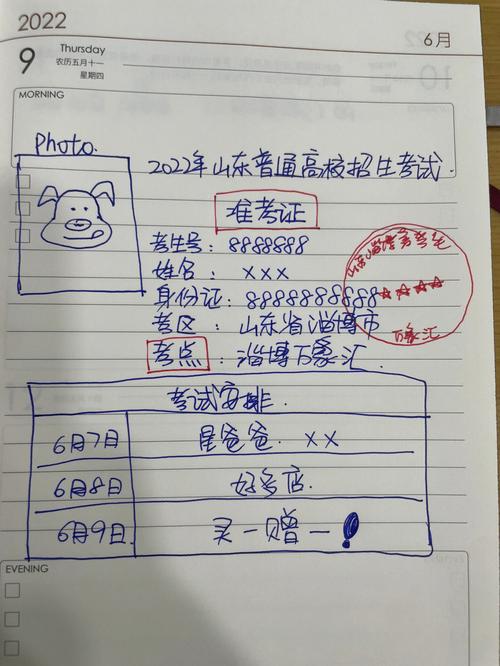 2022
6月
9
Thursday
农历五月十一
星期四
MORNING
Photo.
2022年山东普通高校招生考试.
准考证
考生号: 8888888
姓名: xxx
身份证: 88888888888
考区: 山东省淄博市
考点: 淄博万象汇.
万象汇
考试安排.
6月7日 星爸爸. xx
6月8日 好多店.
6月9日. 买一赠一!
EVENING